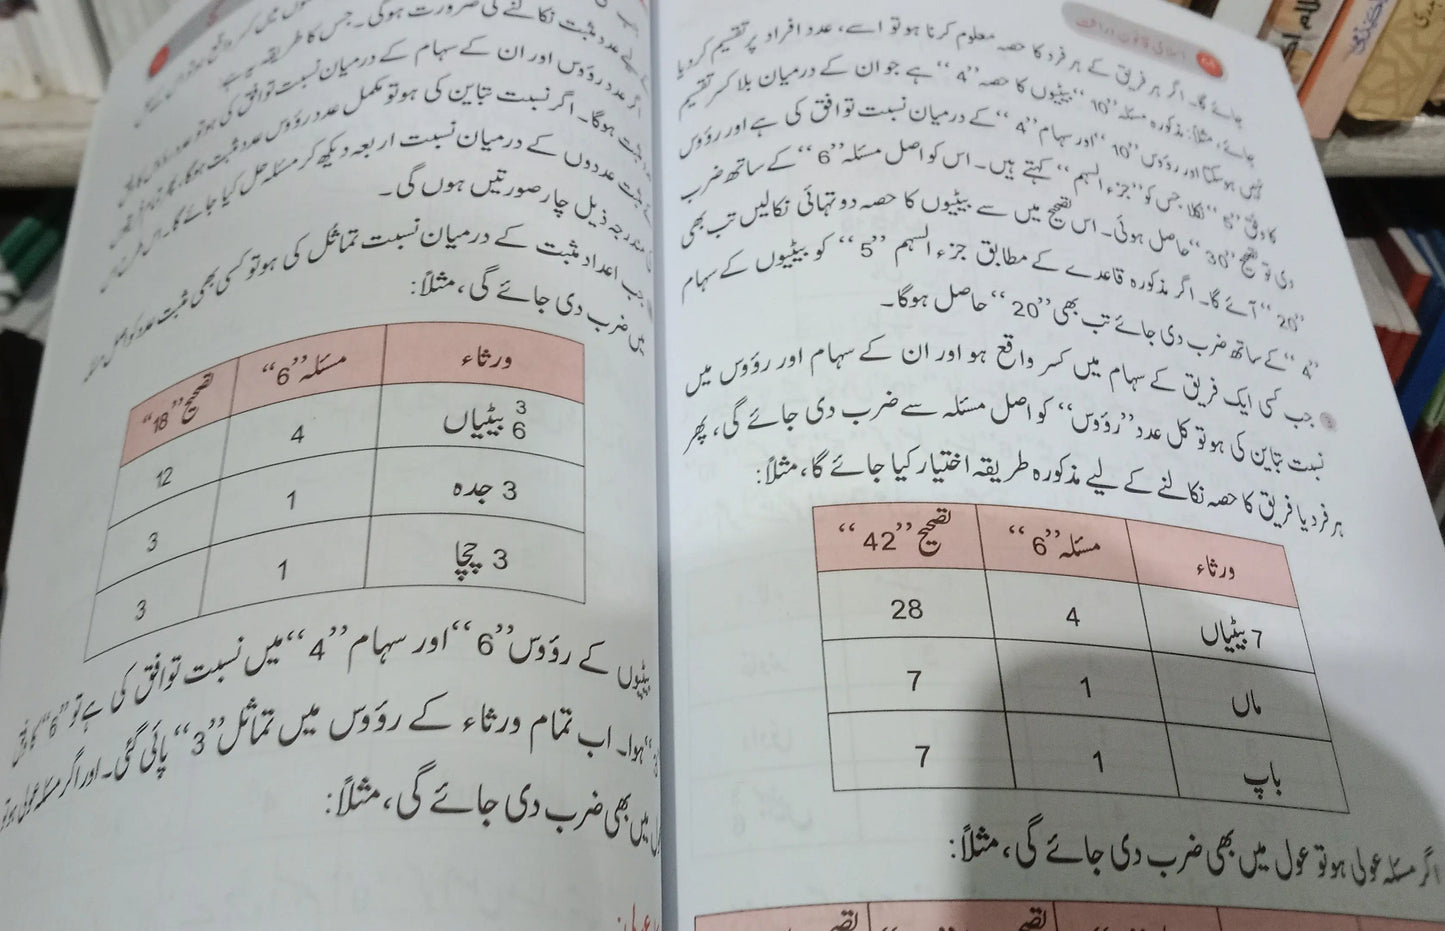 اسلامی قانون وراثت
جائے گا۔ اگر ہر فریق کے ہر فرد کا حصہ معلوم کرنا ہو تو اسے، عدد افراد پر تقسیم کر دیا
جائے، مثلاً: مذکورہ مسئلہ ”10“ بیٹیوں کا حصہ ”4“ ہے جو ان کے درمیان بلا کسر تقسیم
نہیں ہو سکتا اور رؤوس ”10“ اور سہام ”4“ کے درمیان نسبت توافق کی ہے اور رؤوس
کا وفق ”5“ نکلا جس کو ”جزء السہم“ کہتے ہیں۔ اس کو اصل مسئلہ ”6“ کے ساتھ ضرب
دی تو تصحیح ”30“ حاصل ہوئی۔ اس تصحیح میں سے بیٹیوں کا حصہ دو تہائی نکالیں تب بھی
”20“ آئے گا۔ اگر مذکورہ قاعدے کے مطابق جزء السہم ”5“ کو بیٹیوں کے سہام
”4“ کے ساتھ ضرب دی جائے تب بھی ”20“ حاصل ہوگا۔
جب کسی ایک فریق کے سہام میں کسر واقع ہو اور ان کے سہام اور رؤوس میں
نسبت تباین کی ہو تو کل عدد ”رؤوس“ کو اصل مسئلہ سے ضرب دی جائے گی، پھر
ہر فرد یا فریق کا حصہ نکالنے کے لیے مذکورہ طریقہ اختیار کیا جائے گا، مثلاً:
ورثاء مسئلہ ”6“ تصحیح ”42“
7 بیٹیاں 4 28
ماں 1 7
باپ 1 7
اگر مسئلہ عولی ہو تو عول میں بھی ضرب دی جائے گی، مثلاً:
لیے عدد مثبت نکالنے کی ضرورت ہوگی۔ جس کا طریقہ یہ ہے:
اگر عدد رؤوس اور ان کے سہام کے درمیان نسبت توافق کی ہو تو
مثبت ہوگا۔ اگر نسبت تباین کی ہو تو مکمل عدد رؤوس عدد مثبت ہوگا،
مثبت عددوں کے درمیان نسبت اربعہ دیکھ کر مسئلہ حل کیا جائے گا۔ اس طرح اس
مندرجہ ذیل چار صورتیں ہوں گی۔
جب اعداد مثبت کے درمیان نسبت تماثل کی ہو تو کسی بھی مثبت عدد کو اصل مسئلہ
میں ضرب دی جائے گی، مثلاً:
ورثاء مسئلہ ”6“ تصحیح ”18“
3 6 بیٹیاں 4 12
3 جدہ 1 3
3 چچا 1 3
بیٹیوں کے رؤوس ”6“ اور سہام ”4“ میں نسبت توافق کی ہے تو ”6“ کا وفق
ہوا۔ اب تمام ورثاء کے رؤوس میں تماثل ”3“ پائی گئی۔ اور اگر مسئلہ عولی ہو تو
میں بھی ضرب دی جائے گی، مثلاً: